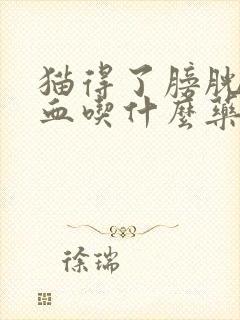 猫得了膀胱
血喫什麼藥
徐瑞